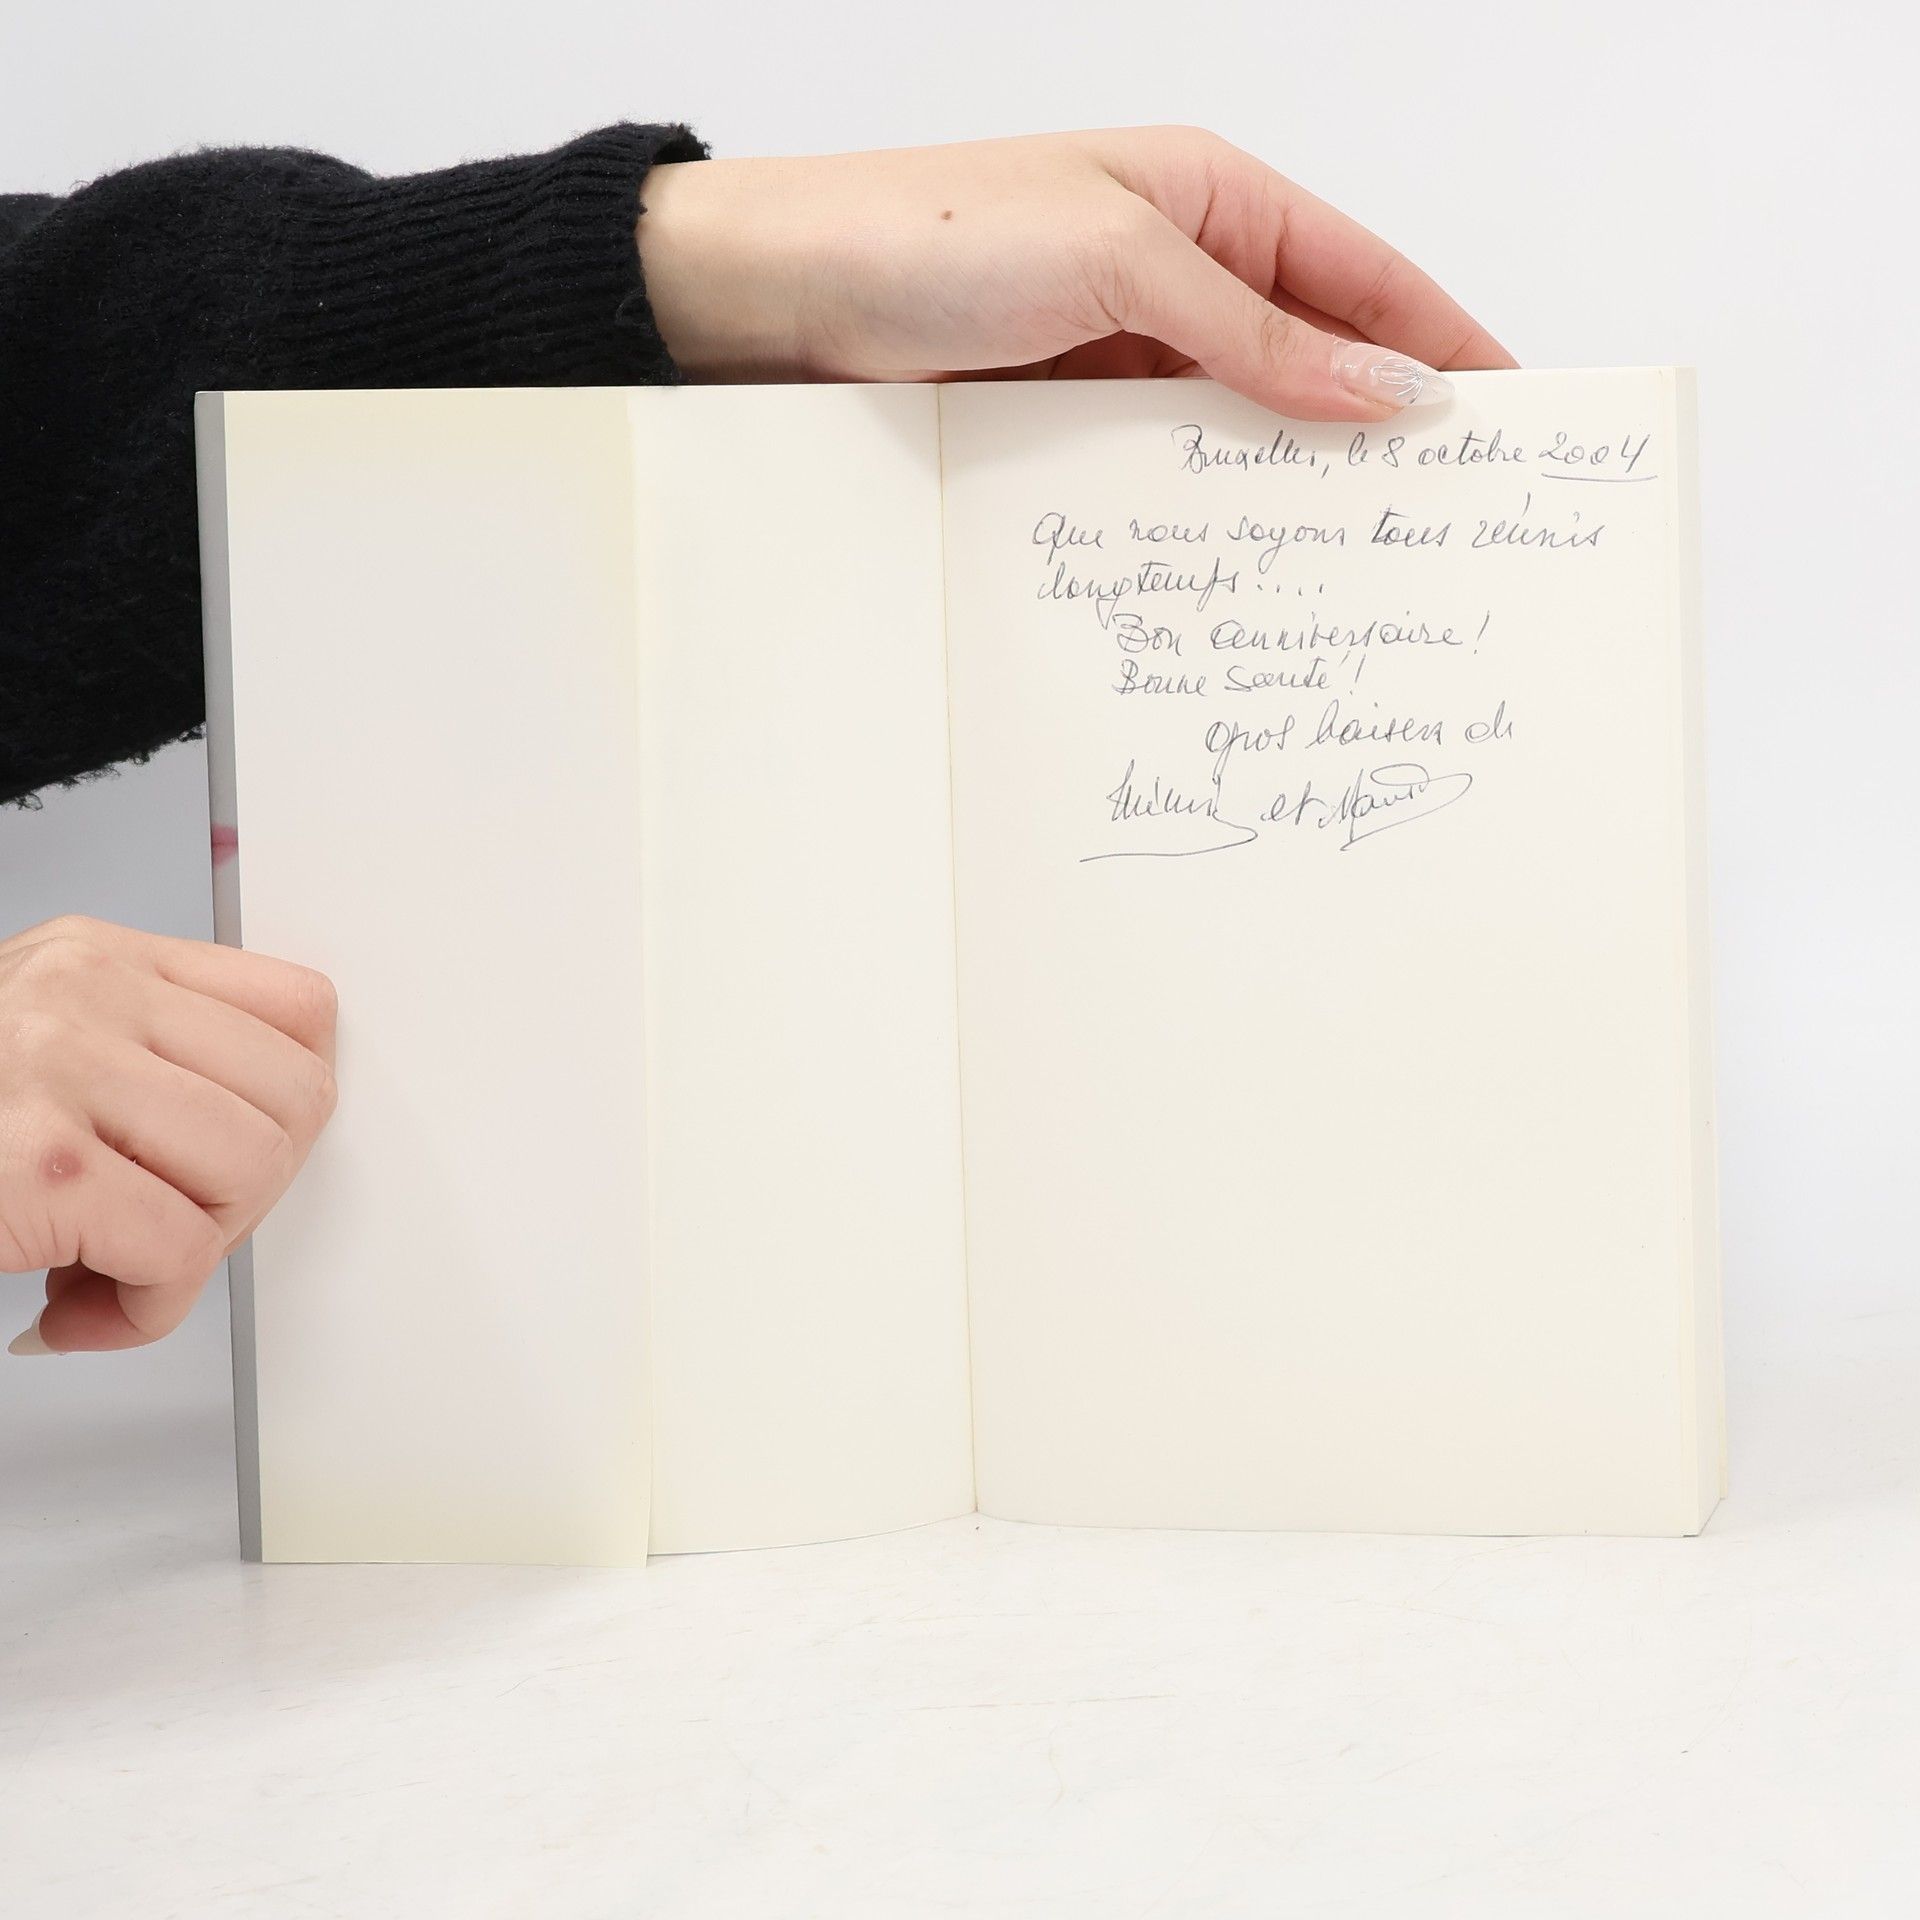 Bruxelles, le 8 octobre 2004
Que nous soyons tous réunis
longtemps....
Bon anniversaire!
Bonne santé!
Gros baisers de
et